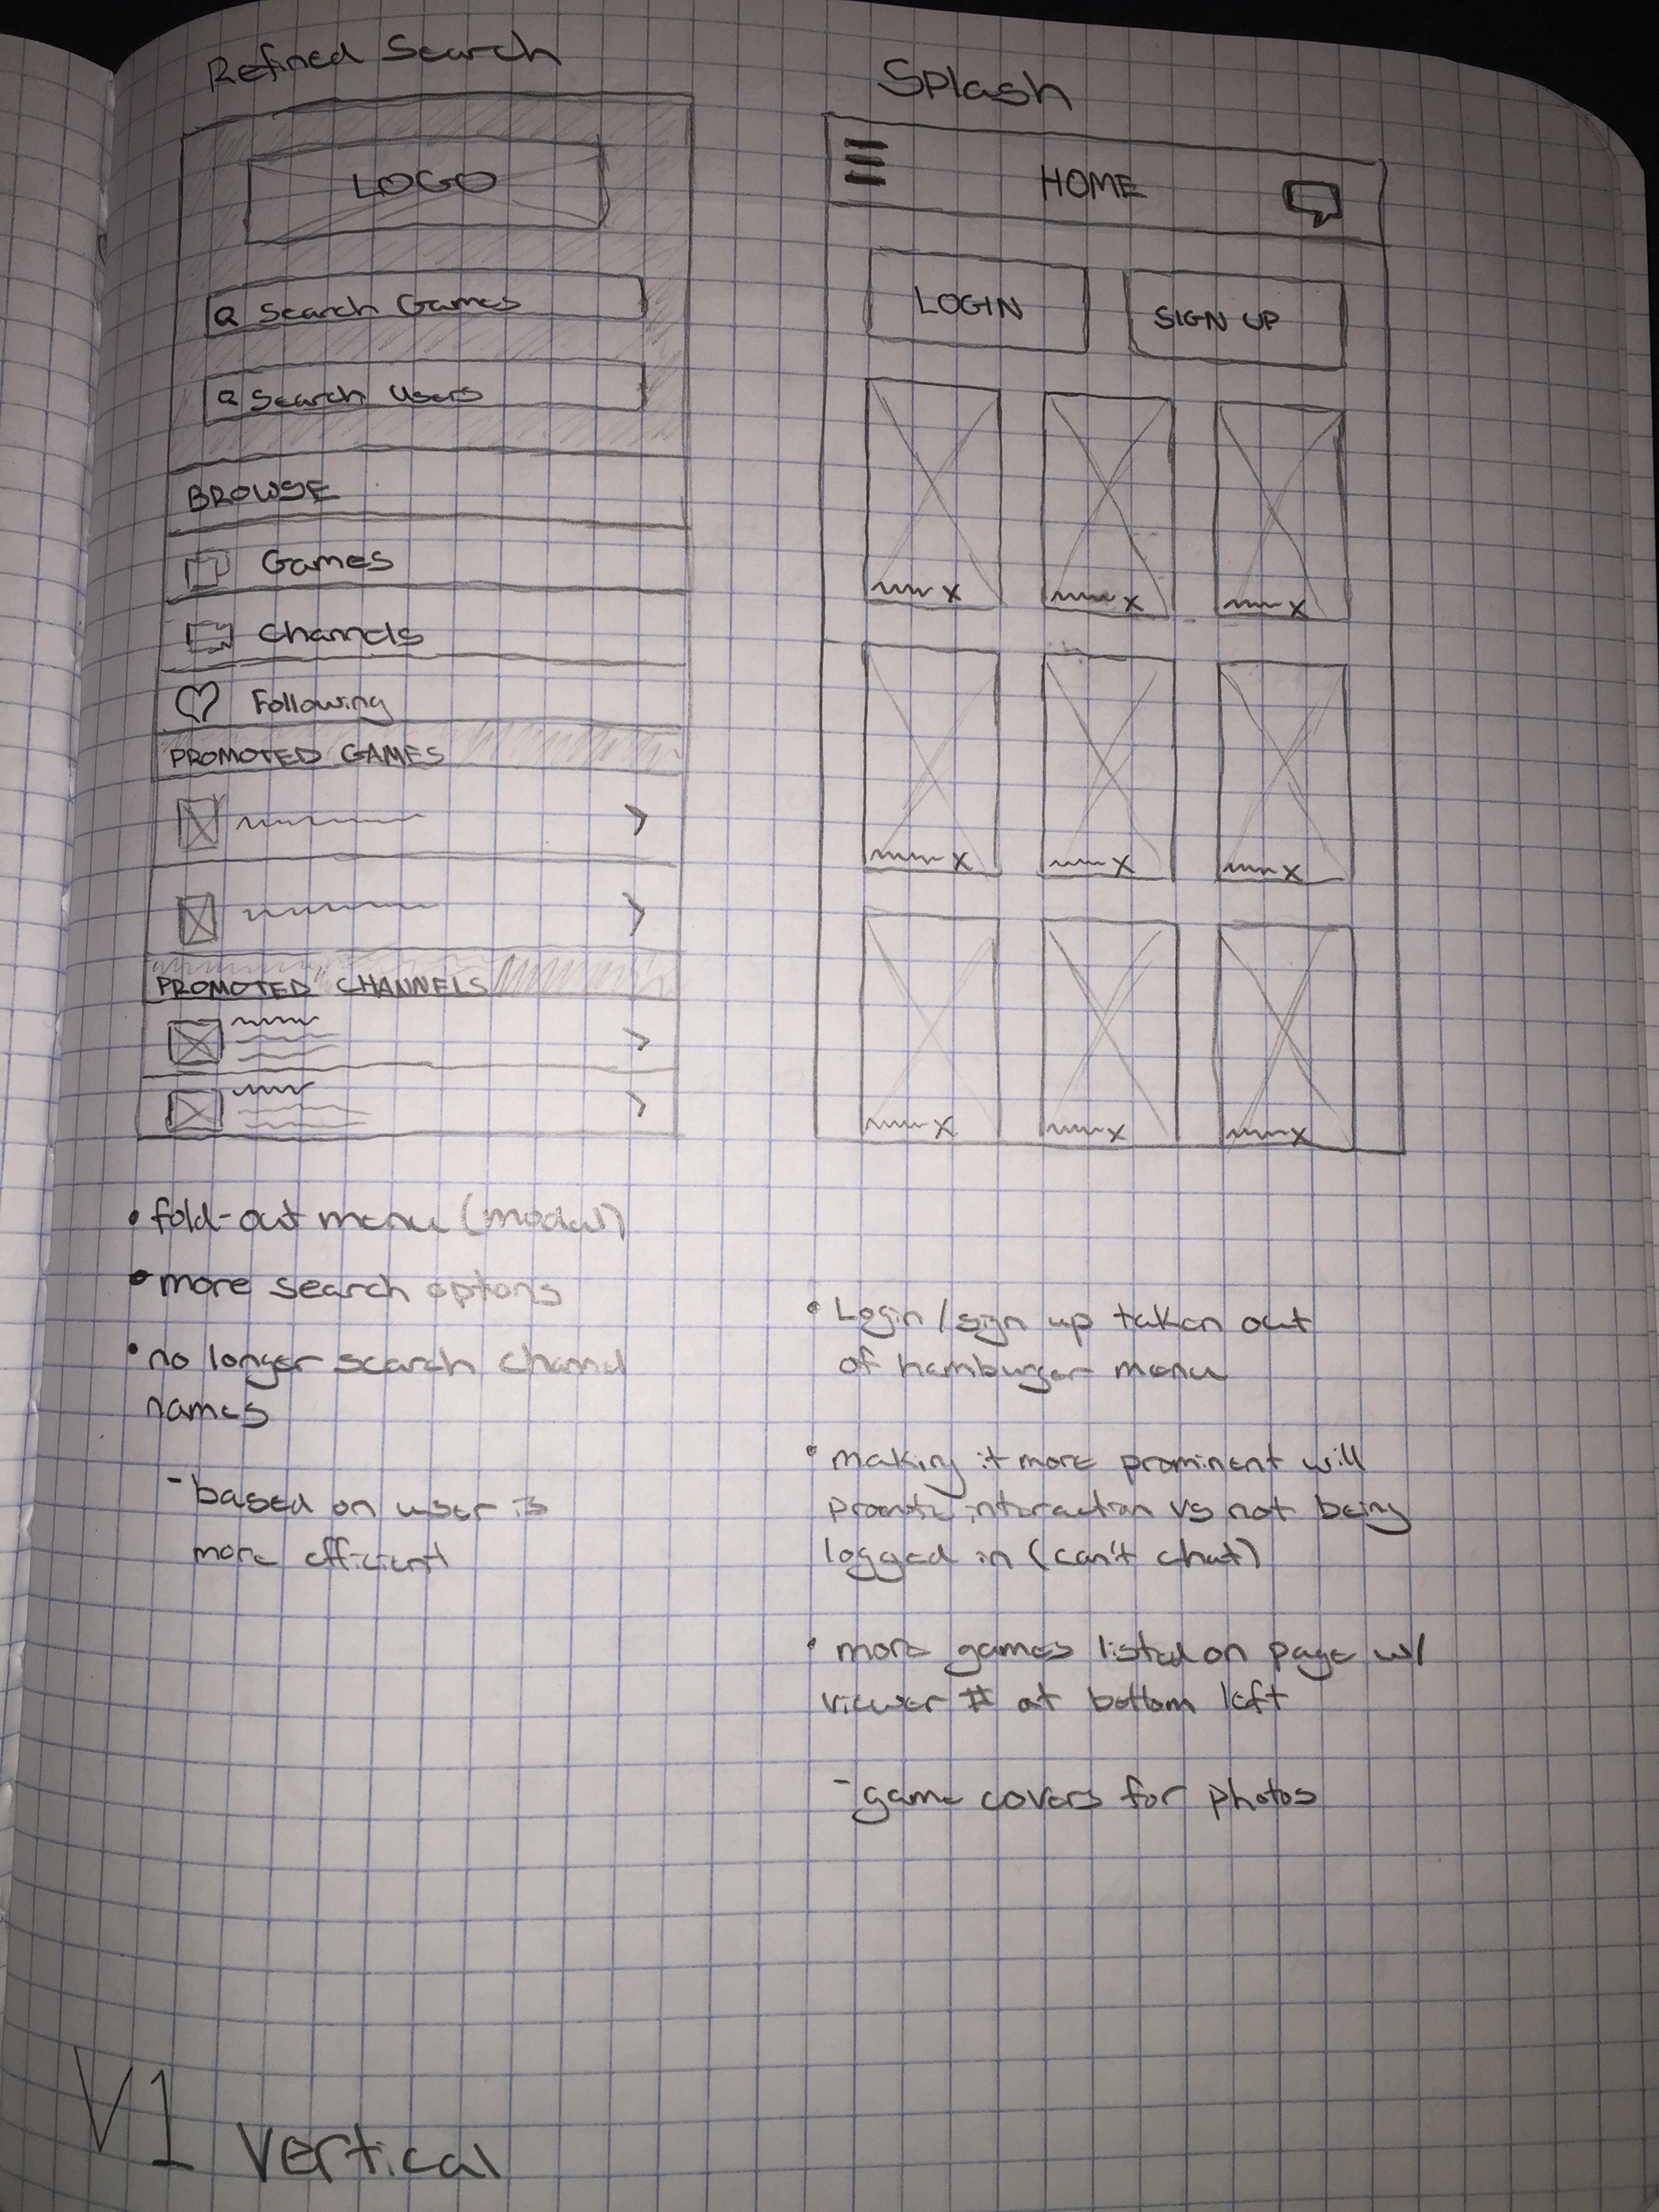 Refined Search
LOGO
Search Games
Search Users
BROWSE
Games
Channels
Following
PROMOTED GAMES
PROMOTED CHANNELS
• fold-out menu (modal)
• more search options
• no longer search channel
names
- based on user is
more efficient
Splash
HOME
LOGIN
SIGN UP
x
x
x
x
x
x
x
x
x
• Login / sign up taken out
of hamburger menu
• making it more prominent will
promote interaction vs not being
logged in (can't chat)
• more games listed on page w/
viewer # at bottom left
- game covers for photos
V1 Vertical